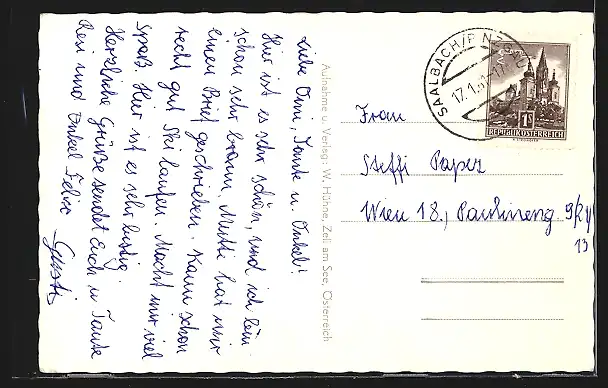 Liebe Omi, Tante u. Onkel!
Hier ist es sehr schön, und ich bin
schon sehr braun. Mutti hat mir
einen Brief geschrieben. Kann schon
recht gut Ski laufen. Macht mir viel
Spaß. Hier ist es sehr lustig.
Herzliche Grüße sendet Euch u. Tante
Resi und Onkel Felix
Gusti
Aufnahme u. Verlag: W. Hühne, Zell am See, Österreich
SAALBACH/PINZGAU
17.1.61-17
1S
REPUBLIK ÖSTERREICH
Frau
Steffi Paper
Wien 18., Paulineng. 9/21/
13